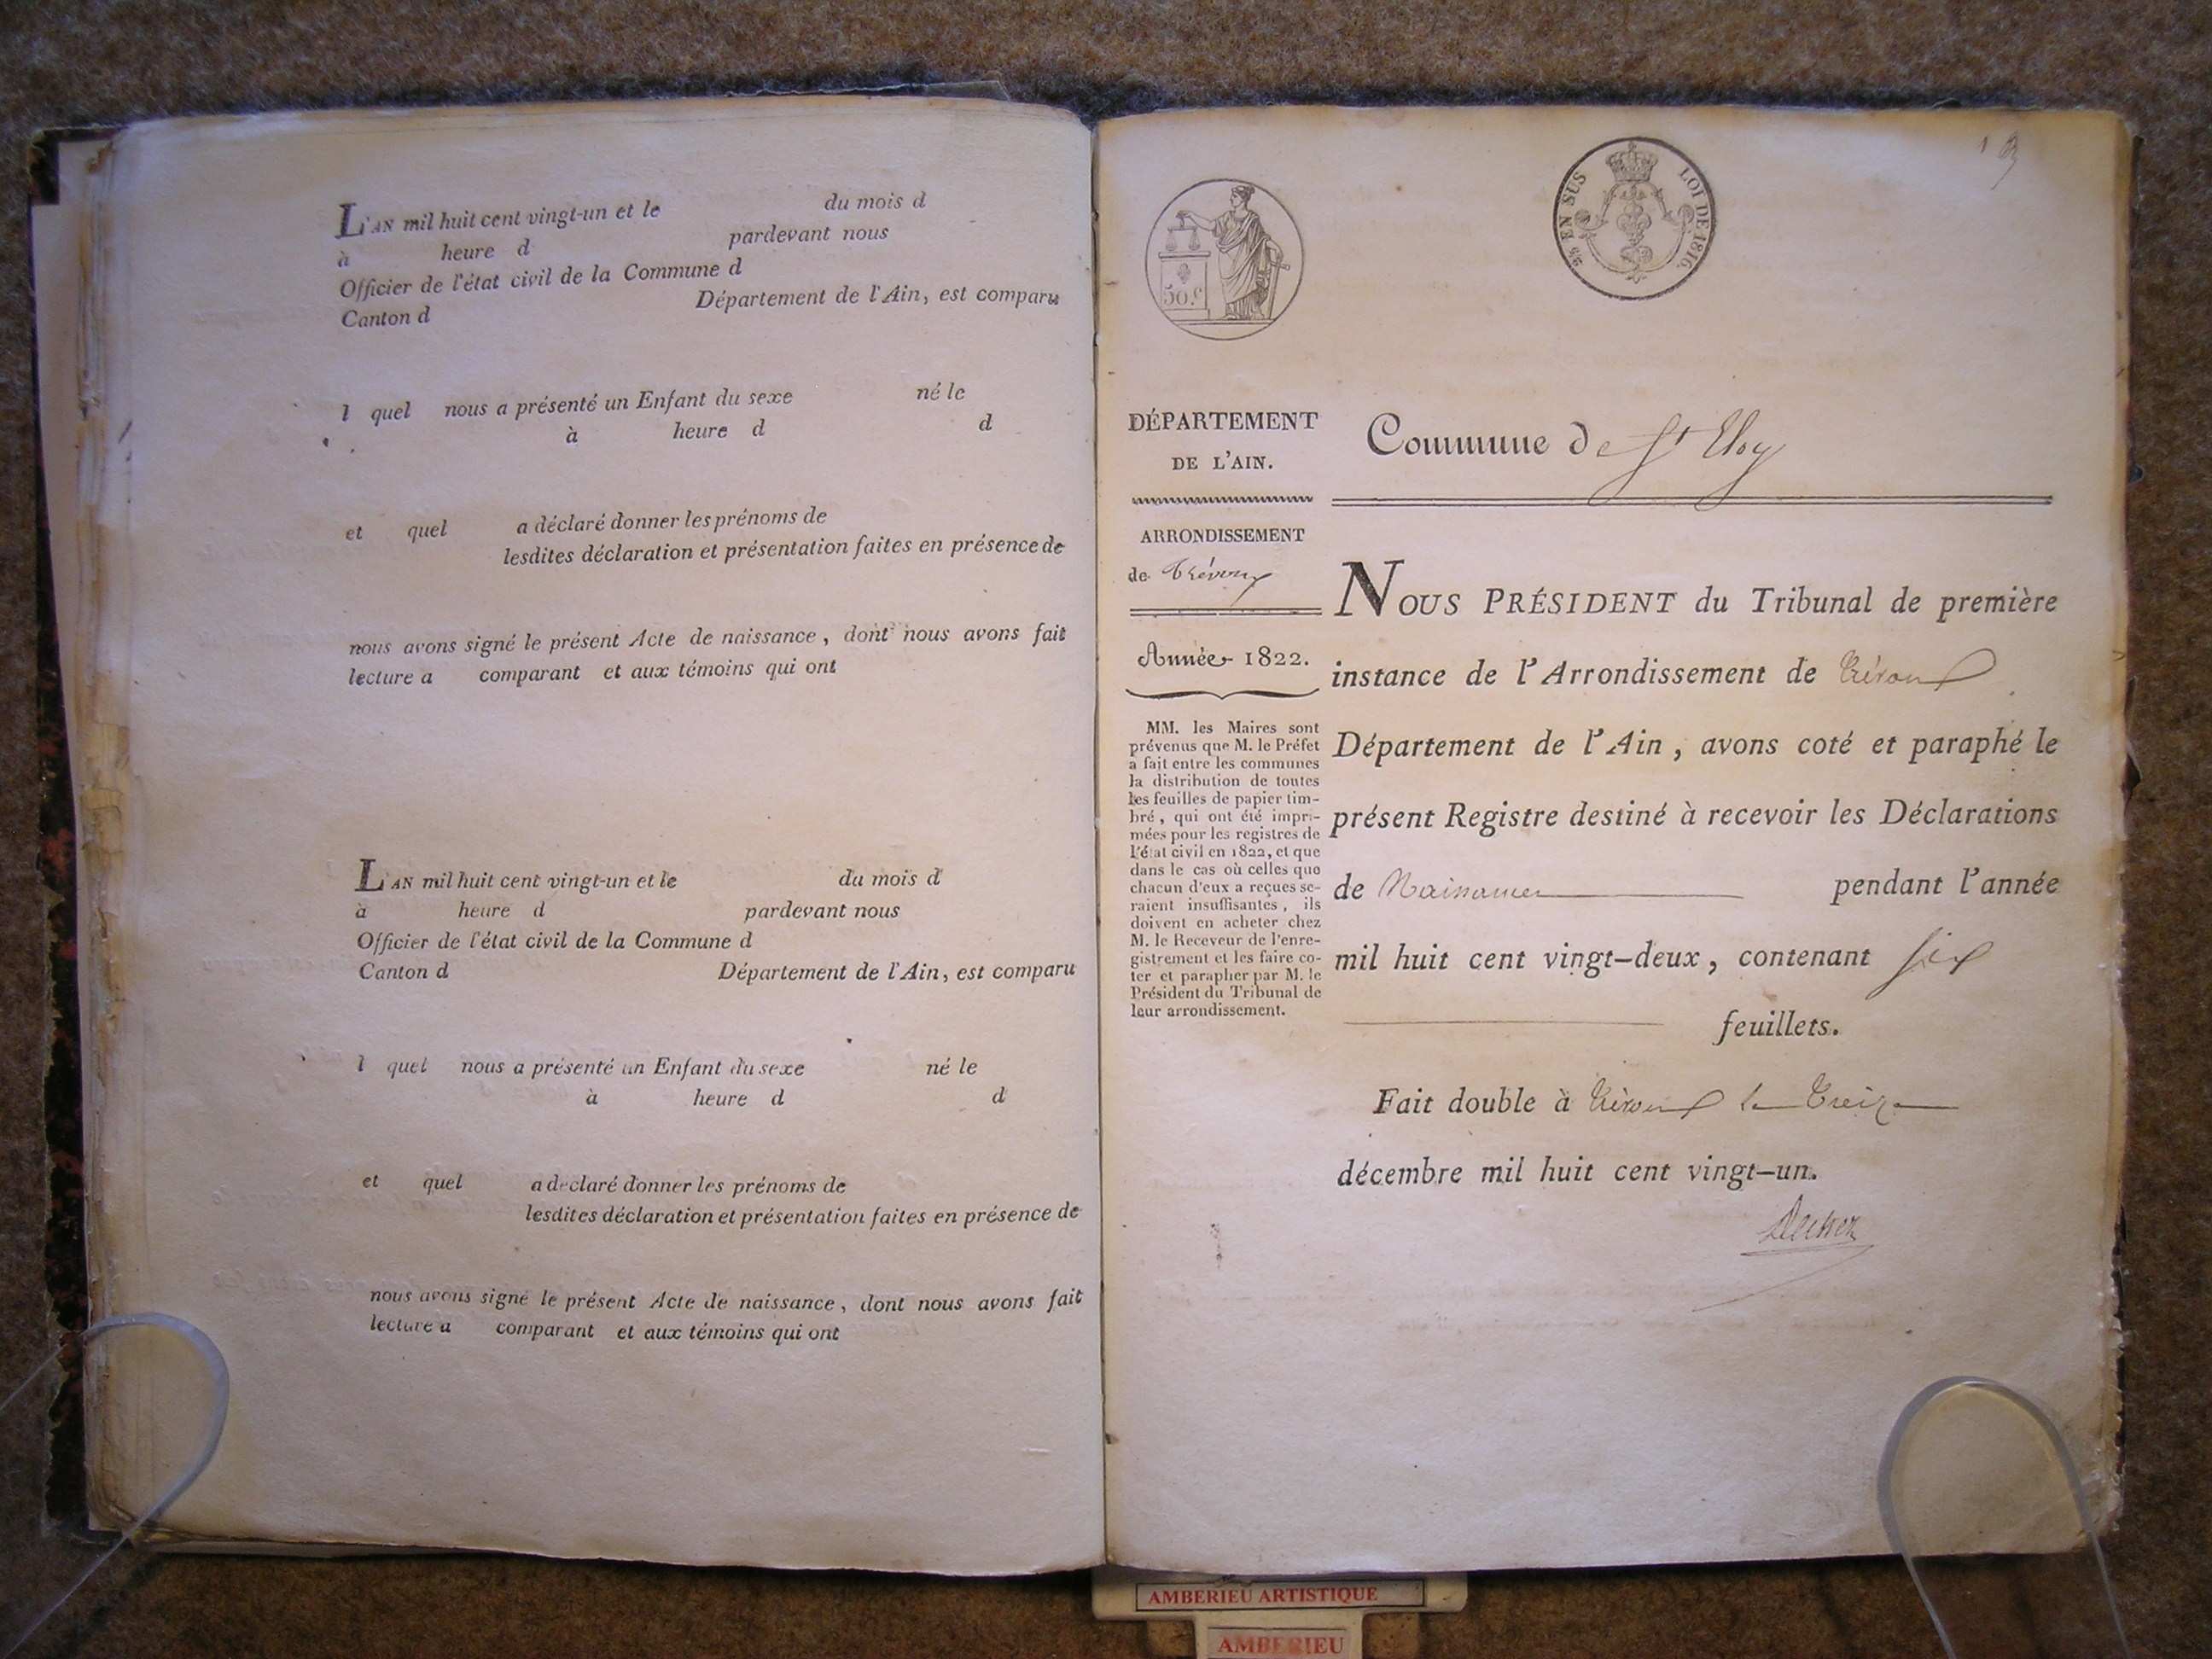 L'AN mil huit cent vingt-un et le du mois d
à heure d pardevant nous
Officier de l'état civil de la Commune d
Canton d Département de l'Ain, est comparu
l quel nous a présenté un Enfant du sexe né le
à heure d d
et quel a déclaré donner les prénoms de
lesdites déclaration et présentation faites en présence de
nous avons signé le présent Acte de naissance, dont nous avons fait
lecture a comparant et aux témoins qui ont
L'AN mil huit cent vingt-un et le du mois d
à heure d pardevant nous
Officier de l'état civil de la Commune d
Canton d Département de l'Ain, est comparu
l quel nous a présenté un Enfant du sexe né le
à heure d d
et quel a déclaré donner les prénoms de
lesdites déclaration et présentation faites en présence de
nous avons signé le présent Acte de naissance, dont nous avons fait
lecture a comparant et aux témoins qui ont
50.c
EN SUS LOI DE 1816.
DÉPARTEMENT
DE L'AIN.
ARRONDISSEMENT
de Trévoux
Année 1822.
MM. les Maires sont
prévenus que M. le Préfet
a fait entre les communes
la distribution de toutes
les feuilles de papier tim-
bré, qui ont été impri-
mées pour les registres de
l'état civil en 1822, et que
dans le cas où celles que
chacun d'eux a reçues se-
raient insuffisantes, ils
doivent en acheter chez
M. le Receveur de l'enre-
gistrement et les faire co-
ter et parapher par M. le
Président du Tribunal de
leur arrondissement.
Commune de St Eloy
NOUS PRÉSIDENT du Tribunal de première
instance de l'Arrondissement de Trévoux
Département de l'Ain, avons coté et paraphé le
présent Registre destiné à recevoir les Déclarations
de Naissances pendant l'année
mil huit cent vingt-deux, contenant six
feuillets.
Fait double à Trévoux le Treize
décembre mil huit cent vingt-un.
AMBERIEU ARTISTIQUE
AMBERIEU